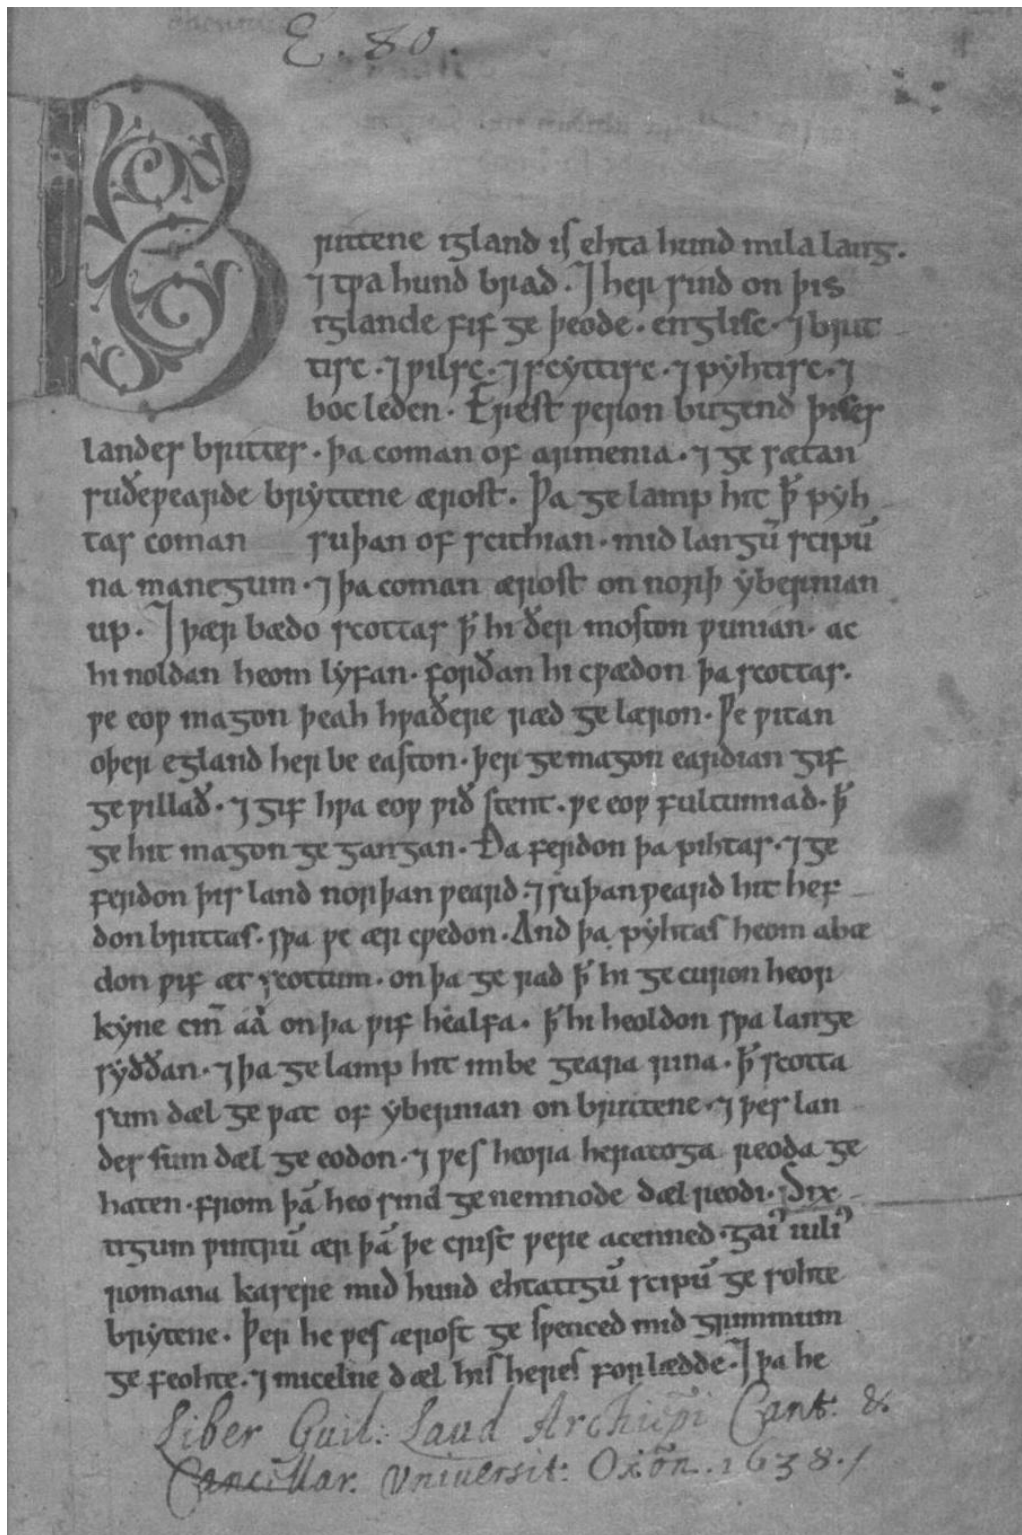 E. 80.
Brittene igland is ehta hund mila lang.
⁊ tƿa hund brad. ⁊ her sind on þis
iglande fif ge þeode. englisc. ⁊ brit
tisc. ⁊ ƿilsc. ⁊ scyttisc. ⁊ pyhtisc. ⁊
boc leden. Erest ƿeron bugend þises
landes brittes. þa coman of armenia. ⁊ ge sætan
suðeƿearde bryttene ærost. Þa ge lamp hit ꝥ pyh
tas coman suþan of scithian. mid langū scipū
na manegum. ⁊ þa coman ærost on norþ ybernian
up. ⁊ þær bædo scottas ꝥ hi ðer moston ƿunian. ac
hi noldan heom lyfan. forðan hi cƿædon þa scottas.
ƿe eoƿ magon þeah hƿaðere ræd ge læron. Ƿe ƿitan
oþer egland her be easton. þer ge magon eardian gif
ge ƿillað. ⁊ gif hƿa eoƿ ƿið stent. ƿe eoƿ fultumiad. ꝥ
ge hit magon ge gangan. Ða ferdon þa pihtas. ⁊ ge
ferdon þis land norþan ƿeard. ⁊ suþanƿeard hit hef
don brittas. sƿa ƿe ær cƿedon. And þa pyhtas heom abæ
don ƿif æt scottum. on þa ge rad ꝥ hi ge curon heor
kyne cin̄ aa on þa ƿif healfa. ꝥ hi heoldon sƿa lange
syððan. ⁊ þa ge lamp hit imbe geara rina. ꝥ scotta
sum dæl ge ƿat of ybernian on brittene. ⁊ þes lan
des sum dæl ge eodon. ⁊ ƿes heora heratoga reoda ge
haten. from þā heo sind ge nemnode dæl reodi. Six
tigum ƿintrū ær þā þe crist ƿere acenned. gaiꝰ iuliꝰ
romana kasere mid hund ehtatigū scipū ge sohte
brytene. Þer he ƿes ærost ge sƿenced mid grimmum
ge feohte. ⁊ micelne dæl his heres for lædde. ⁊ þa he
Liber Guil: Laud Archiepĩ Cant. &
Cancellar. Vniuersit: Oxõn. 1638.